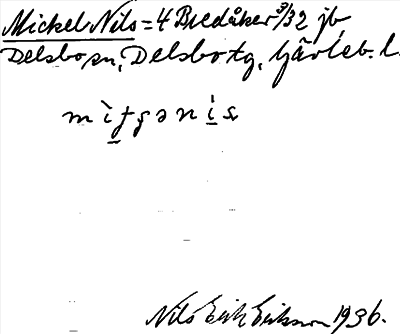 Mickel Nils = 4 Bredåker 3/32 jb,
Delsbo sn, Delsbo tg, Gävleb. l.
Nils Erik Eriksson 1936.